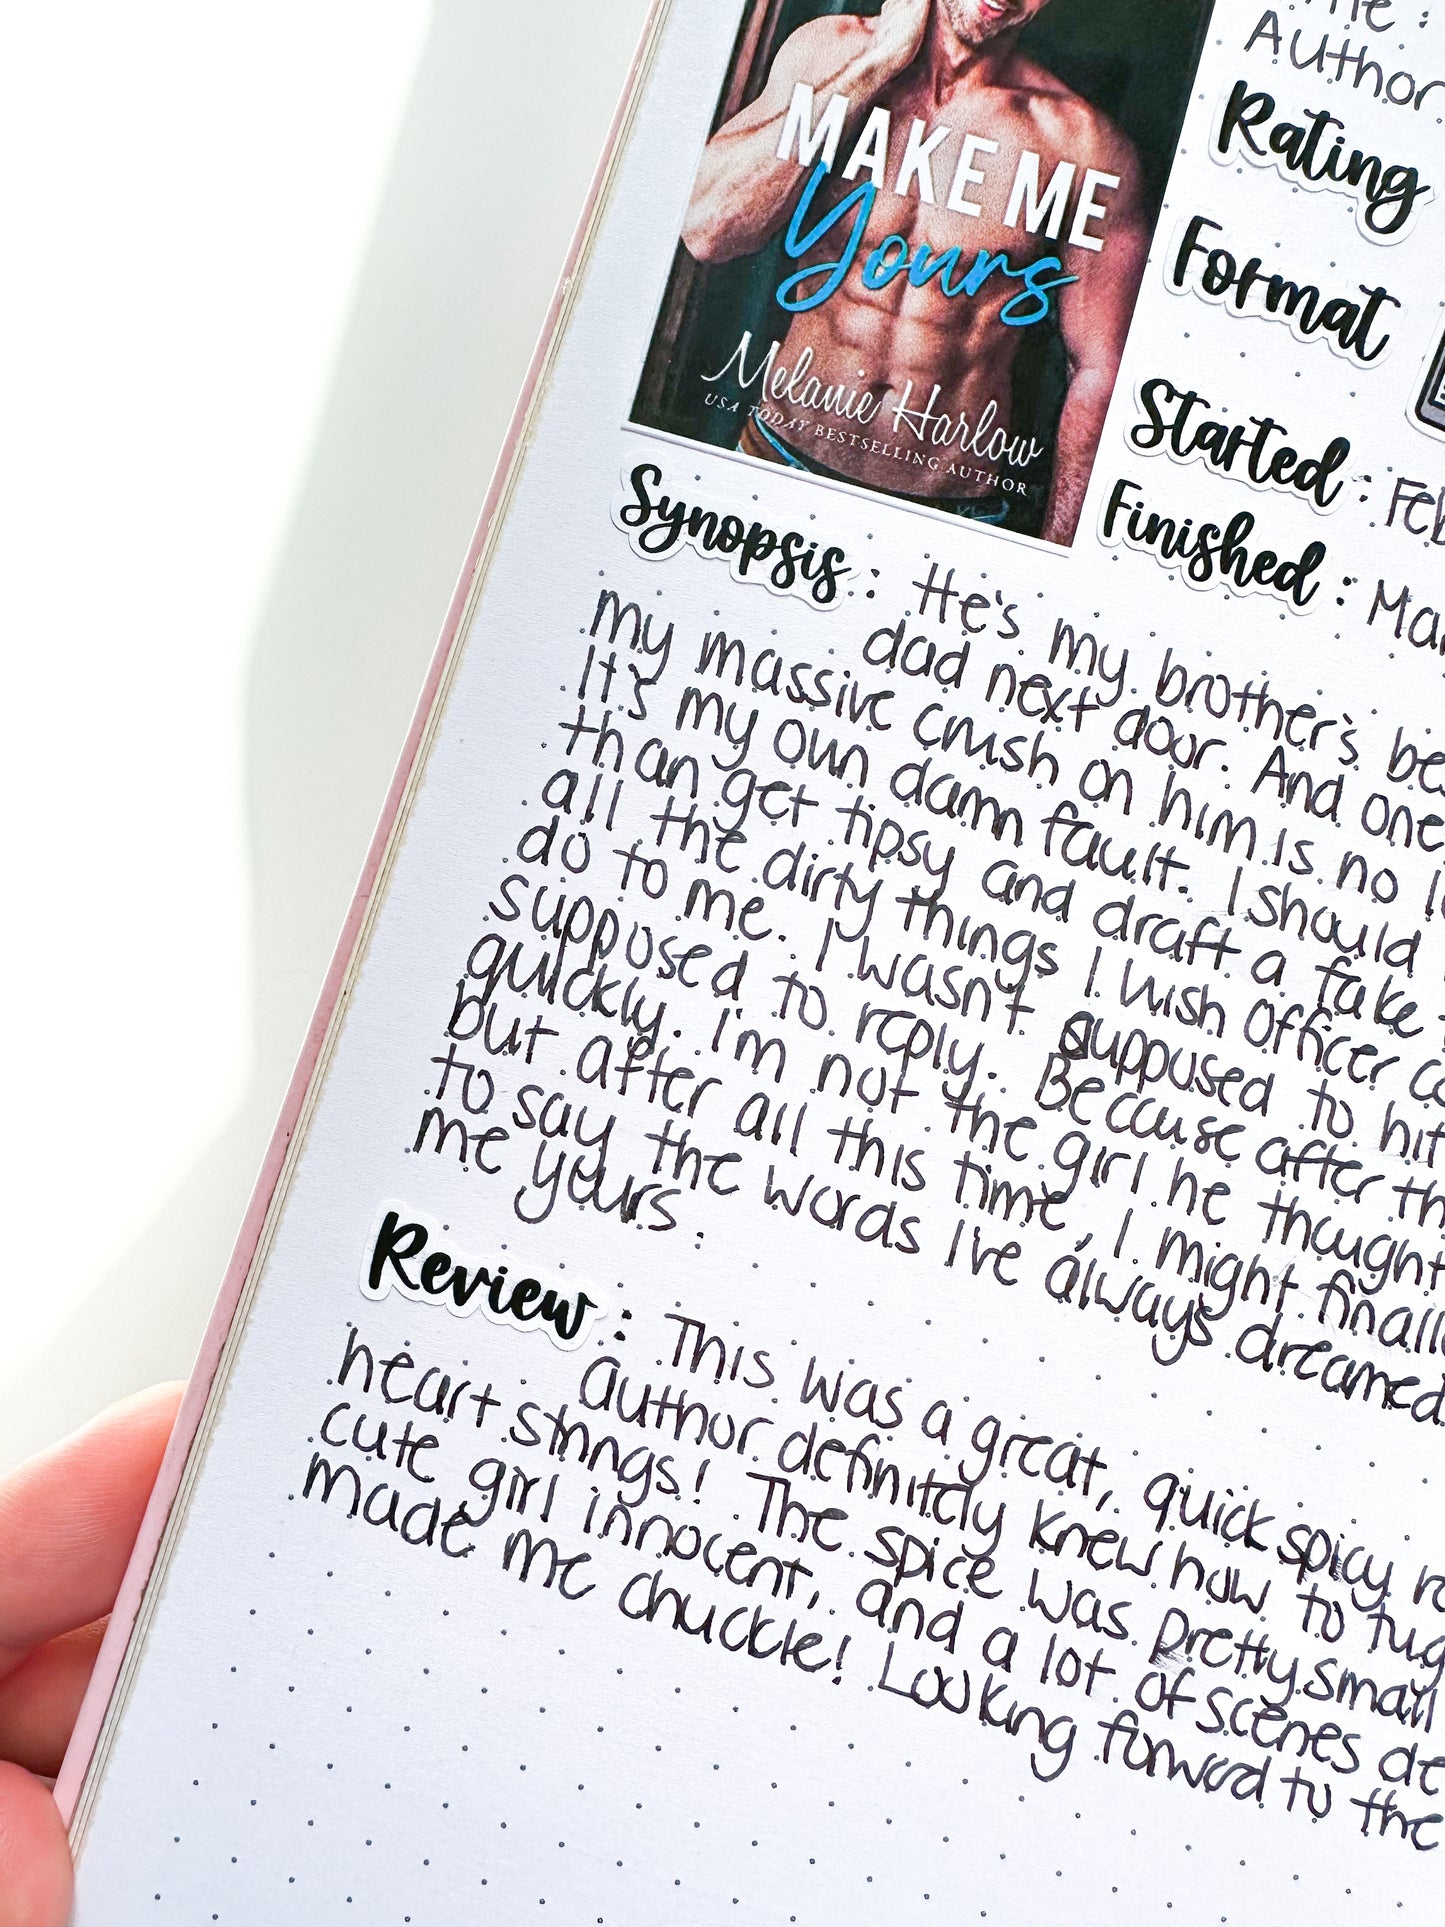 Author
Rating
Format
Started : Feb
Finished : Mar
MAKE ME
Yours
Melanie Harlow
USA TODAY BESTSELLING AUTHOR
Synopsis : He's my brother's be
dad next door. And one
my massive crush on him is no
It's my own damn fault. I should
than get tipsy and draft a fake
all the dirty things I wish officer co
do to me. I wasn't supposed to hit
supposed to reply. Because after th
quickly. I'm not the girl he thought
but after all this time, I might finall
to say the words I've always dreamed
me yours.
Review : This was a great, quick spicy
author definitely knew how to tug
heart strings! The spice was pretty small
cute girl innocent, and a lot of scenes de
made me chuckle! Looking forward to the